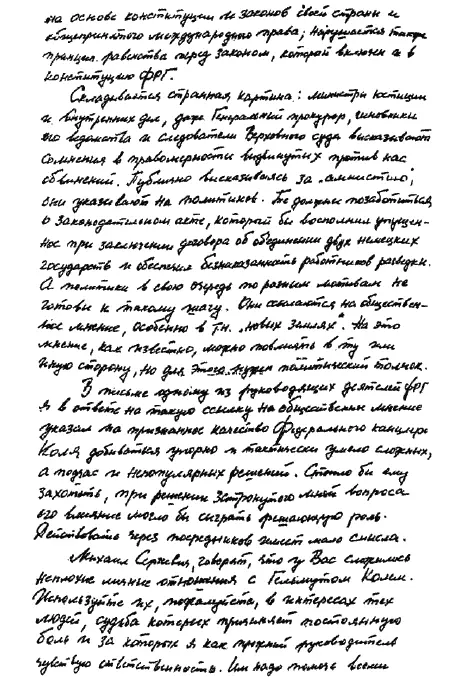 на основе конституции и законов своей страны и
общепринятого международного права; нарушается также
принцип равенства перед законом, который включен и в
конституцию ФРГ.
Складывается странная картина: министры юстиции
и внутренних дел, даже Генеральный прокурор, чиновники
его ведомства и следователи Верховного суда высказывают
сомнения в правомерности выдвинутых против нас
обвинений. Публично высказываясь за „амнистию”,
они указывают на политиков. Те должны позаботиться
о законодательном акте, который бы восполнил упущен-
ное при заключении договора об объединении двух немецких
государств и обеспечил безнаказанность работников разведки.
А политики в свою очередь по разным мотивам не
готовы к такому шагу. Они ссылаются на обществен-
ное мнение, особенно в т.н. „новых землях”. На это
мнение, как известно, можно повлиять в ту или
иную сторону, но для этого нужен политический толчок.
В письме одному из руководящих деятелей ФРГ
я в ответ на такую ссылку на общественное мнение
указал на признанное качество Федерального канцлера
Коля добиваться упорно и тактически умело сложных,
а подчас и непопулярных решений. Стоило бы ему
захотеть, при решении затронутого мной вопроса
его влияние могло бы сыграть решающую роль.
Действовать через посредников имеет мало смысла.
Михаил Сергеевич, говорят, что у Вас сложились
неплохие личные отношения с Гельмутом Колем.
Используйте их, пожалуйста, в интересах тех
людей, судьба которых причиняет постоянную
боль и за которых я как прежний руководитель
чувствую ответственность. Им надо помочь всеми